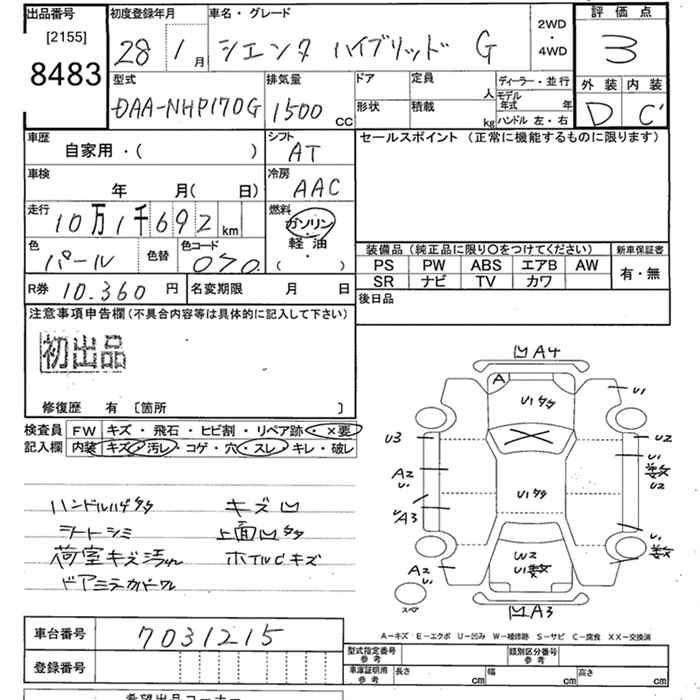 出品番号 初度登録年月 車名・グレード 2WD・4WD 評価点
[2155] 8483 28 1月 シエンタ ハイブリッド G 3
型式 排気量 ドア 定員 人 ディーラー・並行 外装 内装
DAA-NHP170G 1500 CC 形状 積載 kg モデル年式 年 ハンドル 左・右 D C'
車歴 自家用・( ) シフト AT セールスポイント (正常に機能するものに限ります)
車検 年 月( 日) 冷房 AAC
走行 10万1千692km 燃料 ガソリン・軽油 ( )
色 パール 色替 色コード 070 装備品 (純正品に限り○をつけてください) 新車保証書
PS PW ABS エアB AW 有・無
SR ナビ TV カワ
R券 10.360 円 名変期限 月 日 後日品
注意事項申告欄 (不具合内容等は具体的に記入して下さい)
初出品
修復歴 有 [箇所 ]
検査員 FW キズ・飛石・ヒビ割・リペア跡・×要
記入欄 内装 キズ・汚レ・コゲ・穴・スレ・キレ・破レ
ハンドルハゲタタ キズ凹
シートシミ 上面凹タタ
荷室キズ汚れ ホイルCキズ
ドアミラーカバーワレ
凹A4
A U1タタ U1
U3 U2
A2 U1 U1タタ 数 U2
UA3
W2 U1数 数
A2 U1
スペア 凹A3
A-キズ E-エクボ U-凹み W-補修跡 S-サビ C-腐食 XX-交換済
車台番号 7031215
型式指定番号 参考 類別区分番号 参考
登録番号 車庫証明用 参考 長さ cm 幅 cm 高さ cm
希望出品コーナー